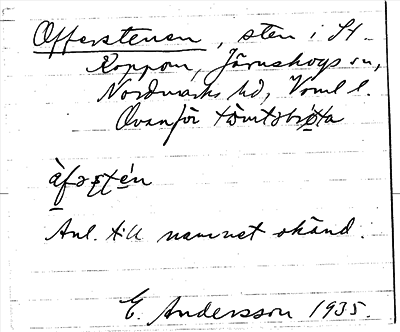 Offerstenen, sten i St.
Koppom, Järnskogs sn,
Nordmarks hd, Vrml l.
Ovanför
Anl. till namnet okänd.
E. Andersson 1935.